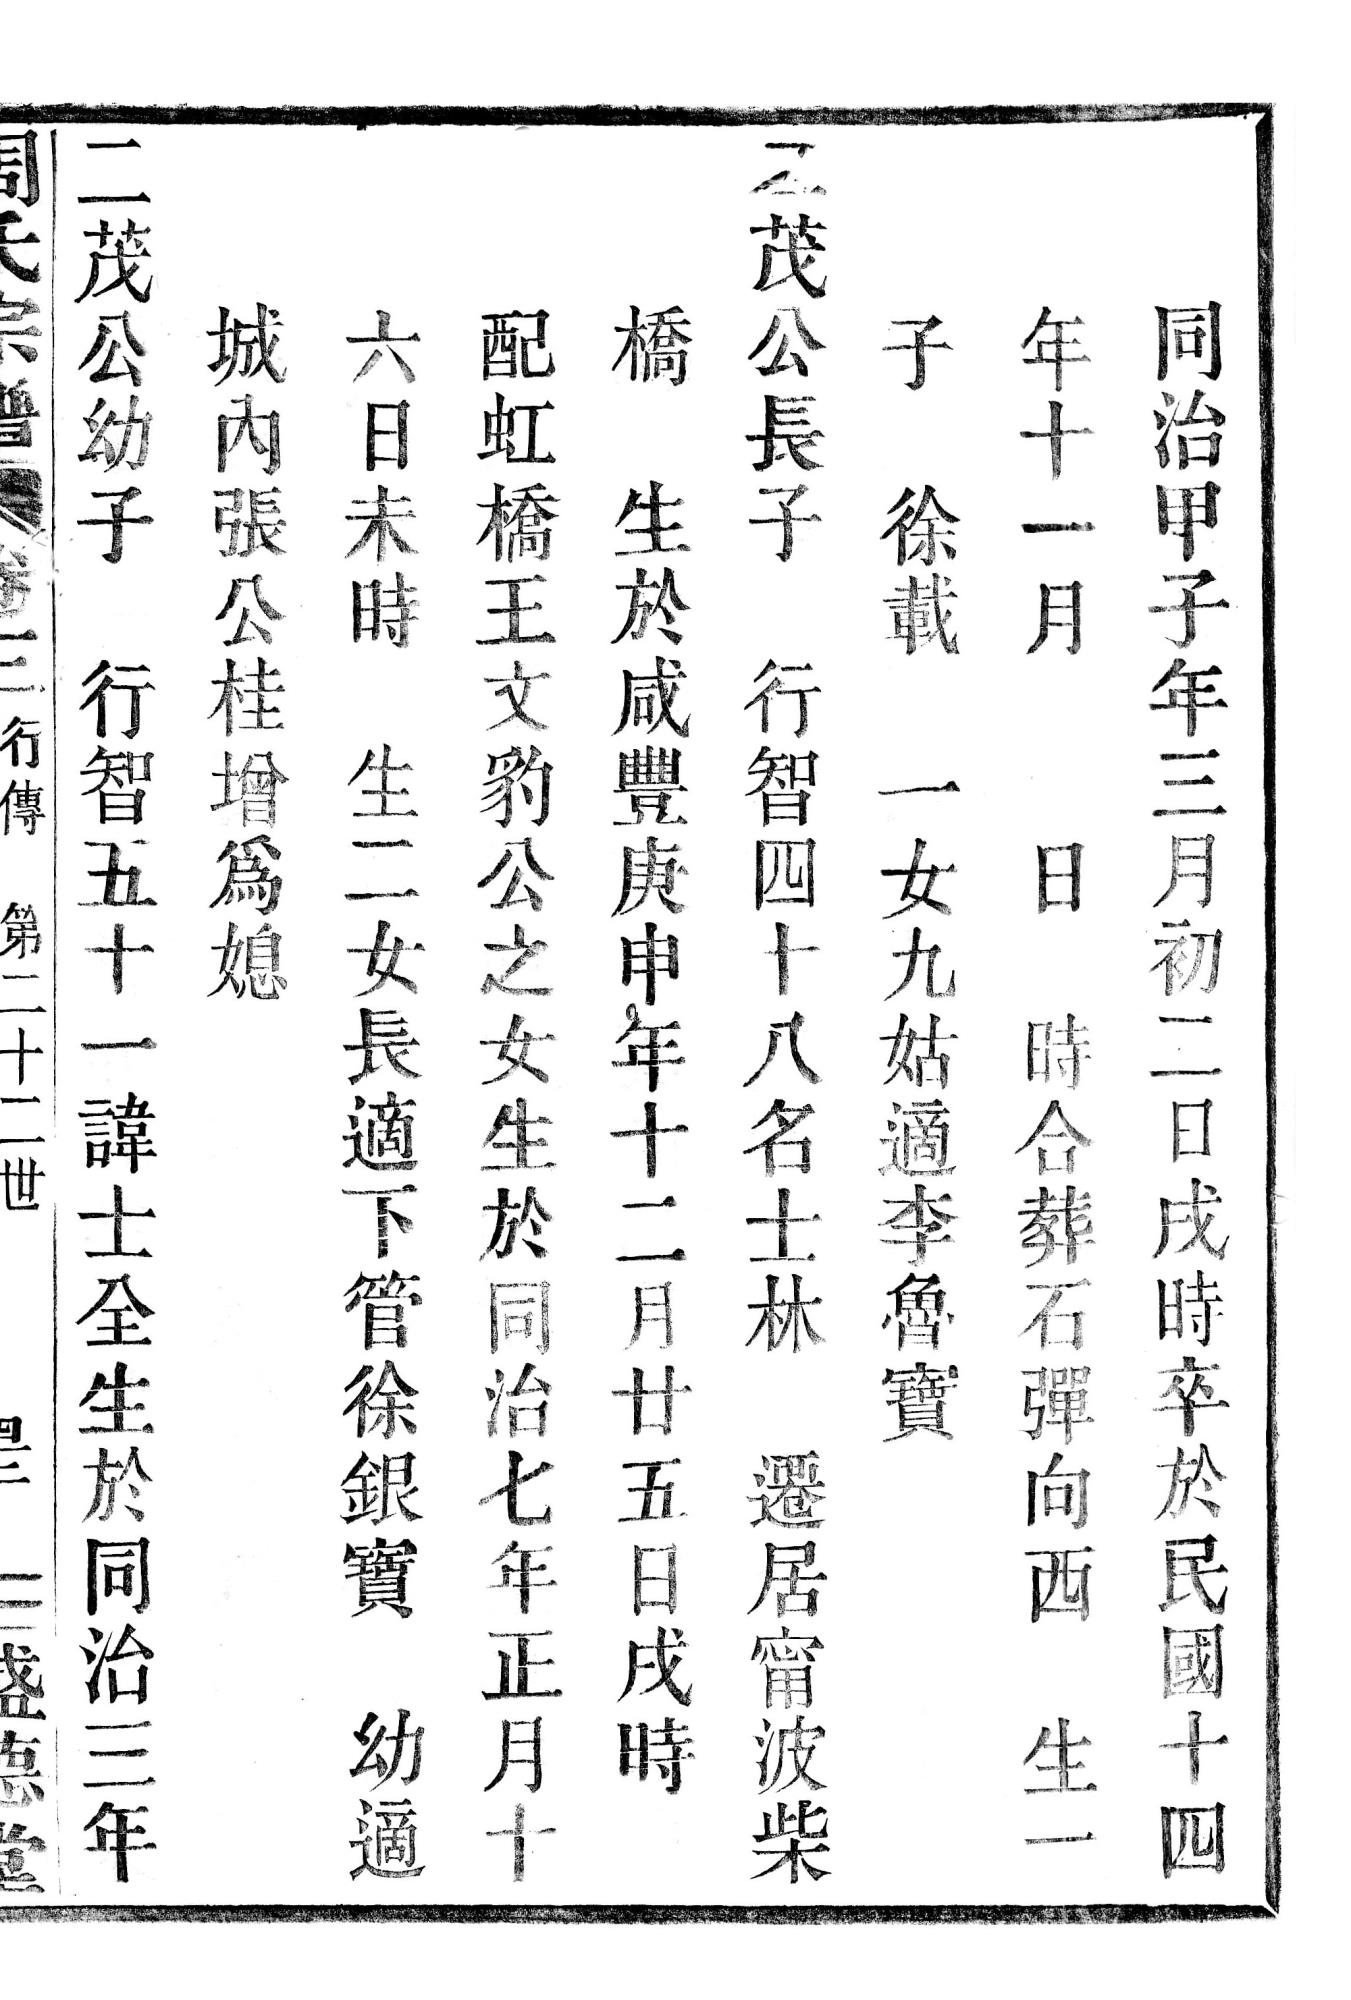 同治甲子年三月初二日戌時卒於民國十四
年十一月　日　時合葬石彈向西　生一
子　徐載　一女九姑適李魯寶
茂公長子　行智四十八名士林　遷居甯波柴
橋　生於咸豐庚申年十二月廿五日戌時
配虹橋王文豹公之女生於同治七年正月十
六日未時　生二女長適下管徐銀寶　幼適
城內張公桂增爲媳
二茂公幼子　行智五十一諱士全生於同治三年
周氏宗譜　卷二　行傳　第二十二世　四二　盛德堂